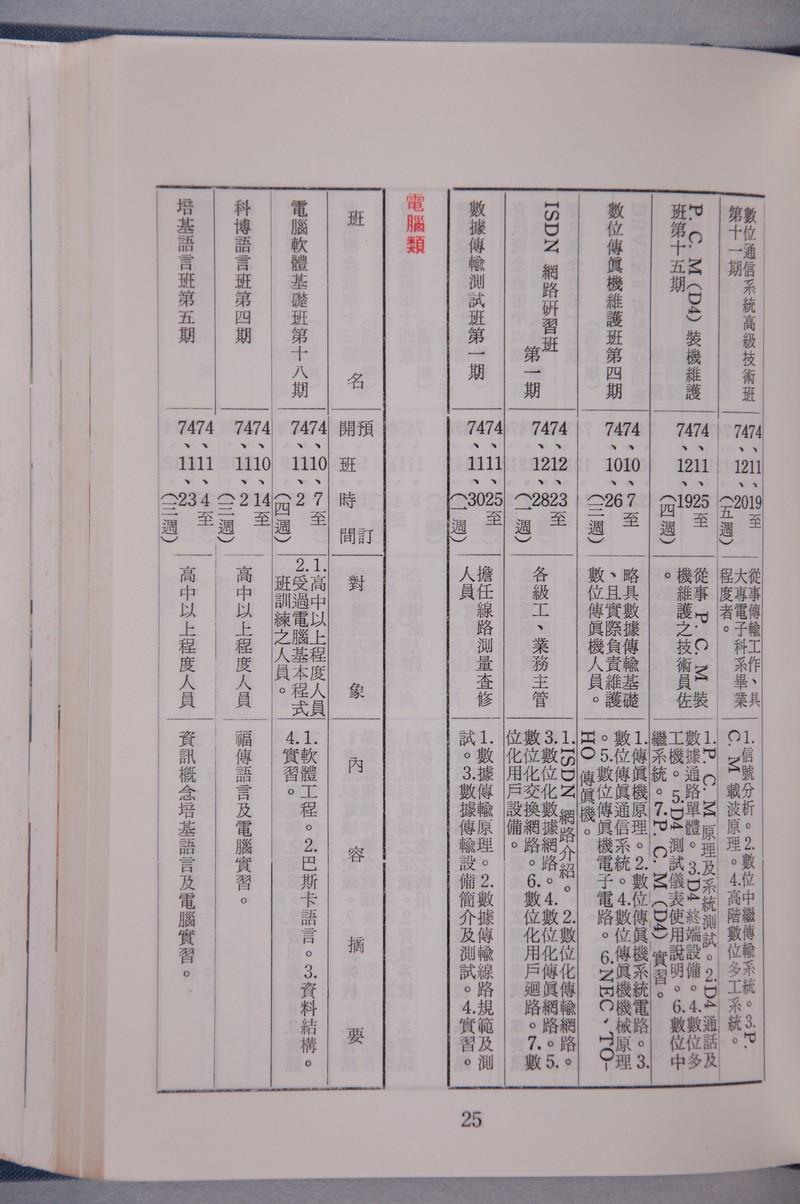 數位通信系統高級技術班
第十一期
74、12、19至
74、11、20
(五週)
從事傳輸工作、具
大專電子科系畢業
程度者。
1.信號分析。2.數位中繼傳輸系統。3.P.
C. M 載波原理。4.高階數位多工系統。
P. C. M (D4) 裝機維護
班第十五期
74、11、25至
74、12、19
(四週)
從事 P. C. M 裝
機維護之技術員佐
。
1.P. C. M 原理及系統測試。2.D4 通話及
數據通路單體。3.D4 終端設備。4.數位多
工機。5.D4 測試儀表使用說明。6.數位中
繼系統。7.P. C. M (D4) 實習。
數位傳眞機維護班第四期
74、10、7至
74、10、26
(三週)
略具數據傳輸基礎
、且實際負責維護
數位傳眞機人員。
1.傳眞機原理。2.數位傳眞機系統電路。3.
數位傳眞通信系統。4.數位傳眞機機械原理
。5.數位傳眞機電子電路。6.NEC、TO-
HO 傳眞機。
ISDN 網路研習班
第一期
74、12、23至
74、12、28
(一週)
各級工、業務主管
1.ISDN 網路介紹。2.數位化傳輸網路。
3.數位化數據網路。4.數位化傳眞網路。5.
數位化交換網路。6.數位化用戶廻路。7.數
位化用戶設備。
數據傳輸測試班第一期
74、11、25至
74、11、30
(一週)
擔任線路測量查修
人員
1.數據傳輸原理。2.數據傳輸線路規範及測
試。3.數據傳輸設備簡介及測試。4.實習。
電腦類
班名
預訂
開班時間
對象
內容摘要
電腦軟體基礎班第十八期
74、10、7至
74、11、2
(四週)
1.高中以上程度人員
2.受過電腦基本程式
班訓練之人員。
1.軟體工程。2.巴斯卡語言。3.資料結構。
4.實習。
科博語言班第四期
74、10、14至
74、11、2
(三週)
高中以上程度人員
福傳語言及電腦實習。
培基語言班第五期
74、11、4至
74、11、23
(三週)
高中以上程度人員
資訊概念培基語言及電腦實習。
25